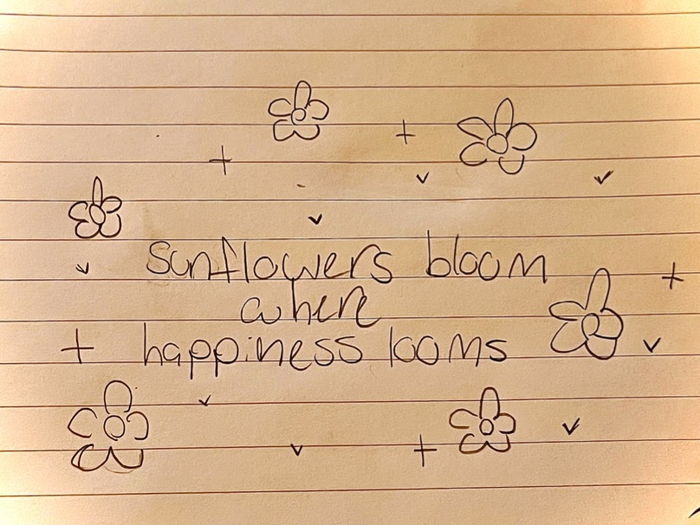 sunflowers bloom
where
happiness looms